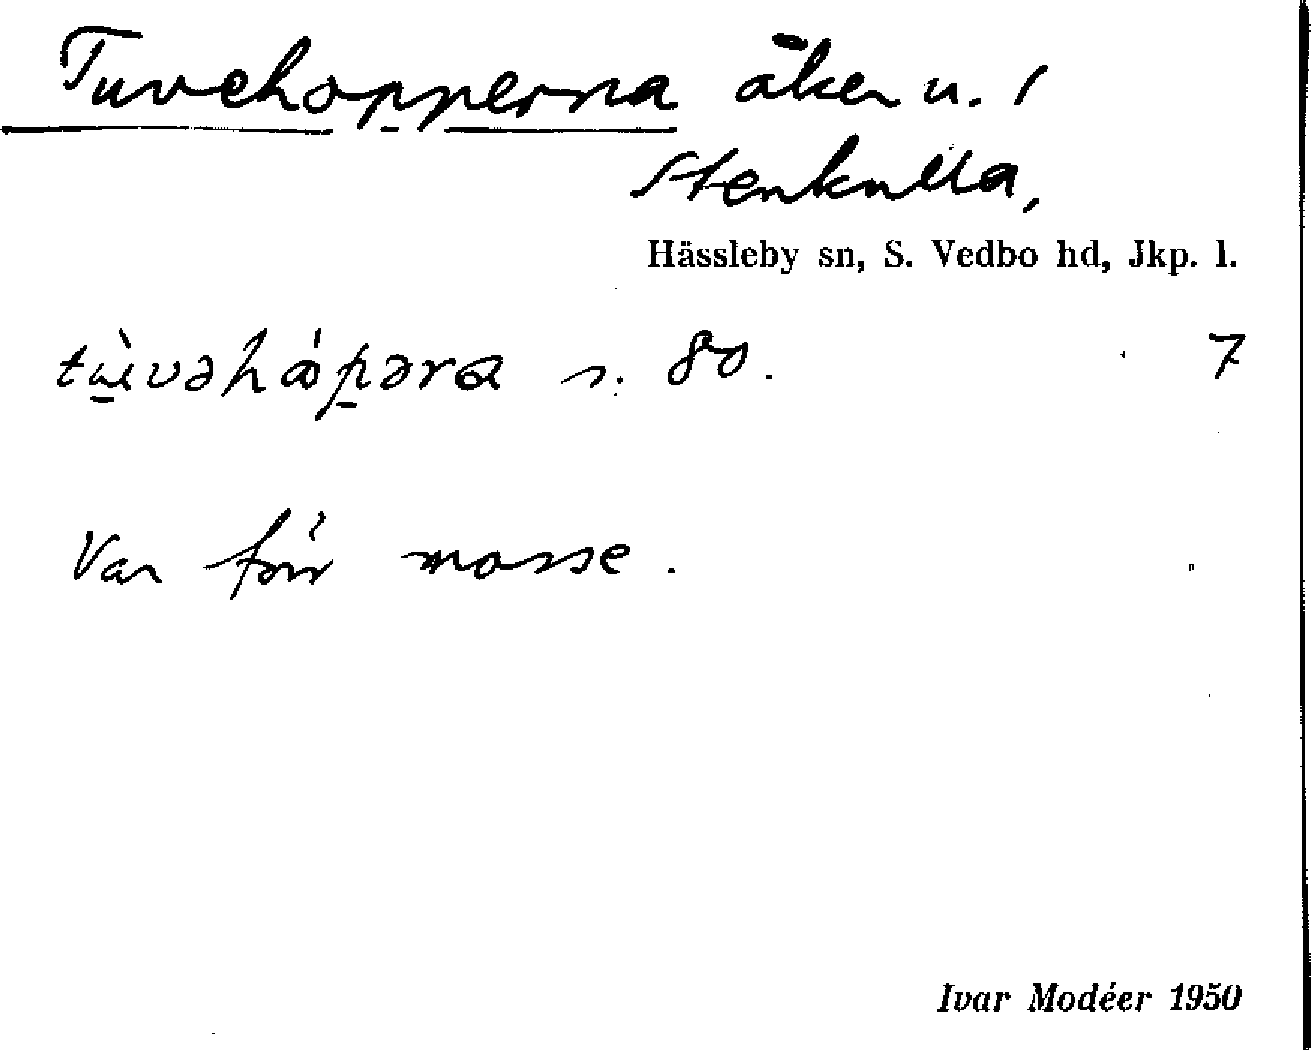 Tuvehopperna åker u. 1
Stenkulla,
Hässleby sn, S. Vedbo hd, Jkp. l.
s. 80. 7
Var förr mosse.
Ivar Modéer 1950